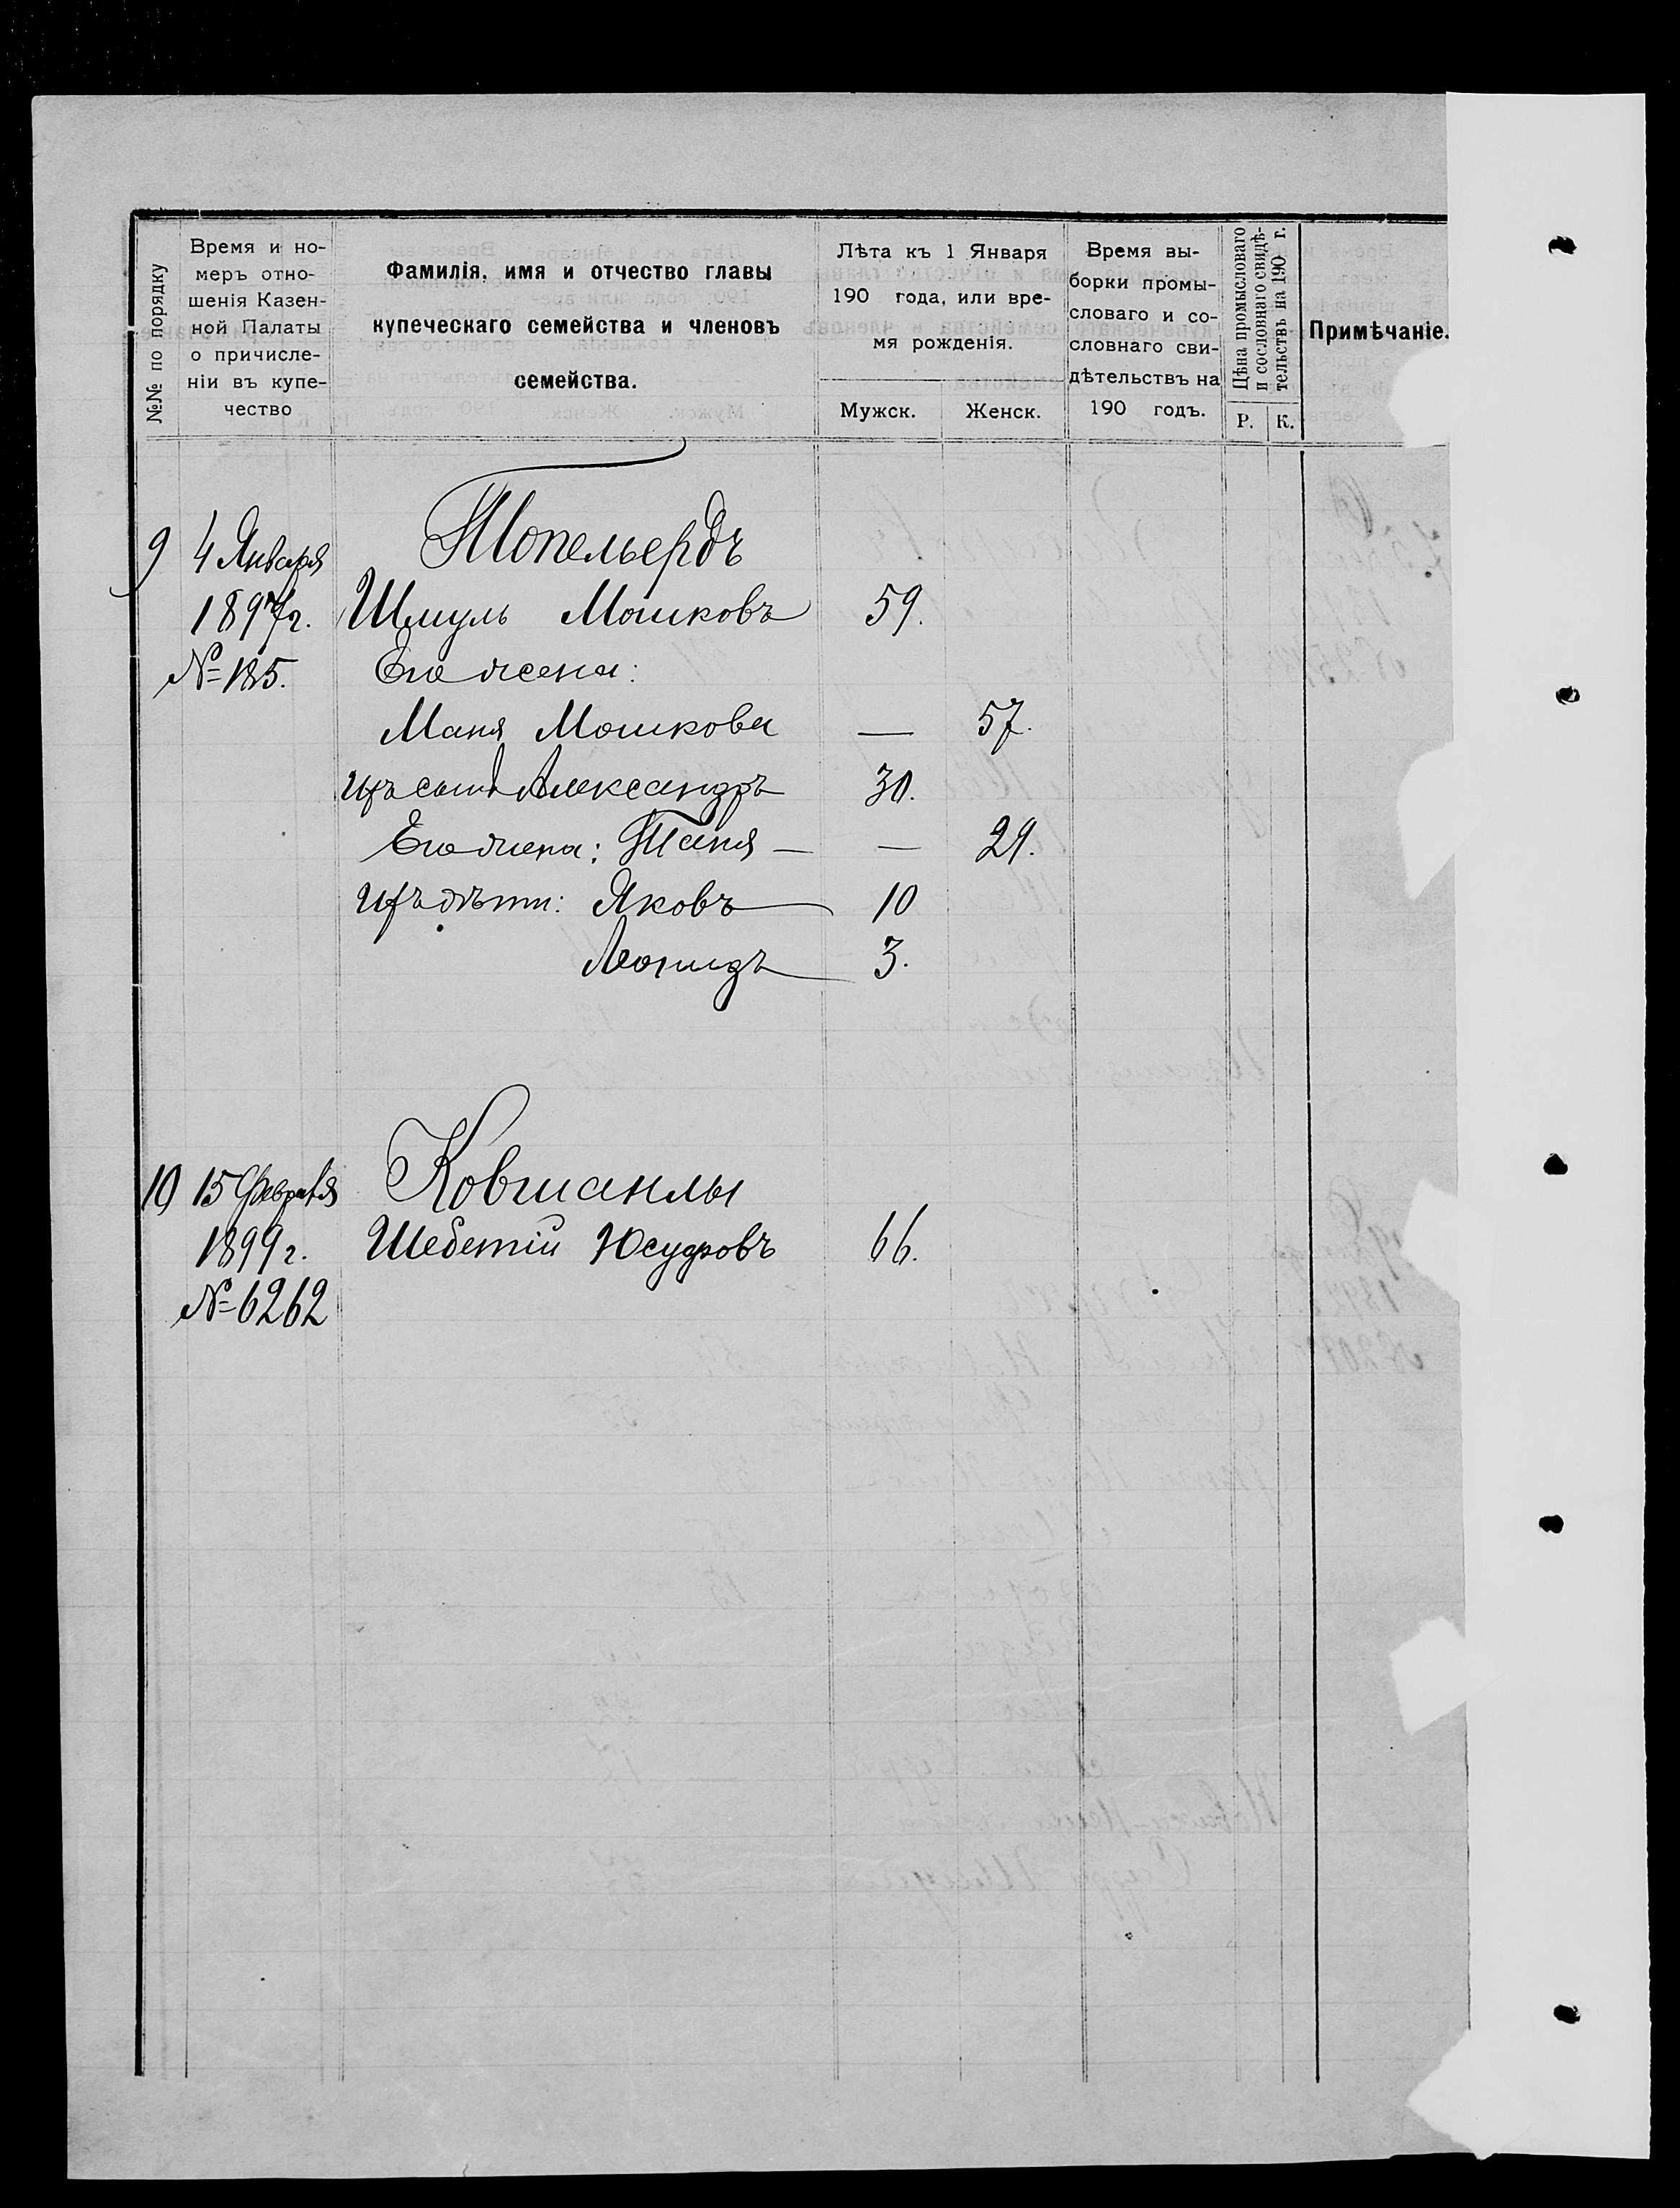 №№ по порядку
Время и но-
меръ отно-
шенія Казен-
ной Палаты
о причисле-
ніи въ купе-
чество
Фамилія, имя и отчество главы
купеческаго семейства и членовъ
семейства.
Лѣта къ 1 Января
190 года, или вре-
мя рожденія.
Мужск. Женск.
Время вы-
борки промы-
словаго и со-
словнаго сви-
дѣтельствъ на
190 годъ.
Цѣна промысловаго
и сословнаго свидѣ-
тельствъ на 190 г.
Р. К.
Примѣчаніе.
9 4 Января Топельбергъ
1897 г. Шмуль Мошковъ 59.
№ 185. Его жена:
Маня Мошкова — 57.
Ихъ сынъ Александръ 30.
Его жена: Таня — — 29.
Ихъ дѣти: Яковъ 10
Леонидъ 3.
10 15 Февраля Ковшанлы
1899 г. Шебетій Юсуфовъ 66.
№ 6262